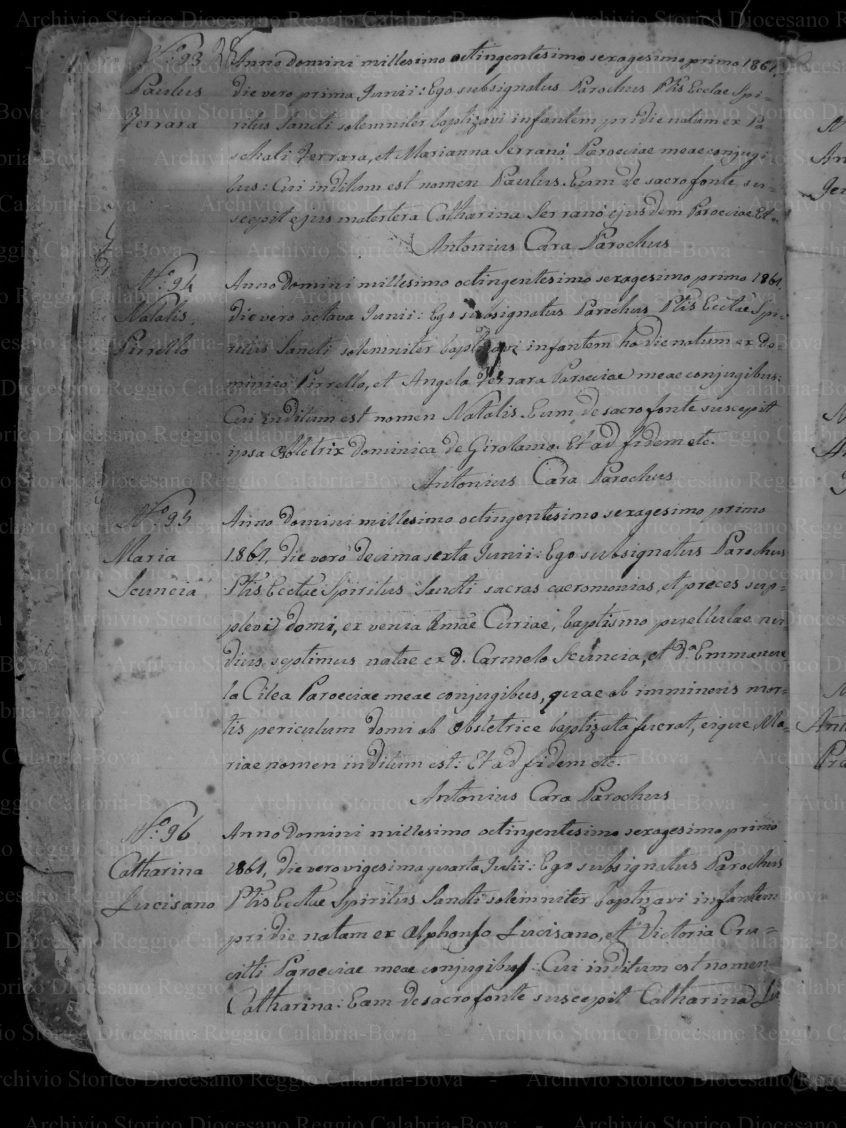 N.º 93
Paulus
Ferrara
Anno Domini millesimo octingentesimo sexagesimo primo 1861,
die vero prima Junii: Ego subsignatus Parochus Ptis Ecclae Spi-
ritus Sancti solemniter baptizavi infantem pridie natum ex Pa
schali Ferrara, et Marianna Serranò Paroeciae meae conjugi
bus: Cui inditum est nomen Paulus. Eum de sacro fonte su-
scepit ejus matertera Catharina Serranò ejusdem Paroeciae Et
Antonius Cara Parochus
N.º 94
Natalis
Pirrello
Anno Domini millesimo octingentesimo sexagesimo primo 1861
die vero octava Junii: Ego subsignatus Parochus Ptis Ecclae Spi-
ritus Sancti solemniter baptizavi infantem hodie natum ex Do-
minico Pirrello, et Angela Ferrara Paroeciae meae conjugibus:
Cui inditum est nomen Natalis. Eum de sacro fonte suscepit
ipsa Obstetrix Dominica de Girolamo. Et ad fidem etc.
Antonius Cara Parochus
N.º 95
Maria
Scuncia
Anno Domini millesimo octingentesimo sexagesimo primo
1861, die vero decima sexta Junii: Ego subsignatus Parochus
Ptis Ecclae Spiritus Sancti sacras caeremonias, et preces sup-
plevi domi, ex venia Rmae Curiae, baptismo puellulae nu
dius septimus natae ex D. Carmelo Scuncia, et D.ª Emmanue
la Cilea Paroeciae meae conjugibus, quae ob imminens mor-
tis periculum domi ab Obstetrice baptizata fuerat, eique Ma-
riae nomen inditum est. Et ad fidem etc.
Antonius Cara Parochus
N.º 96
Catharina
Lucisano
Anno Domini millesimo octingentesimo sexagesimo primo
1861, die vero vigesima quarta Julii: Ego subsignatus Parochus
Ptis Ecclae Spiritus Sancti solemniter baptizavi infantem
pridie natam ex Alphonso Lucisano, et Victoria Cru-
citti Paroeciae meae conjugibus: Cui inditum est nomen
Catharina: Eam de sacro fonte suscepit Catharina Lu